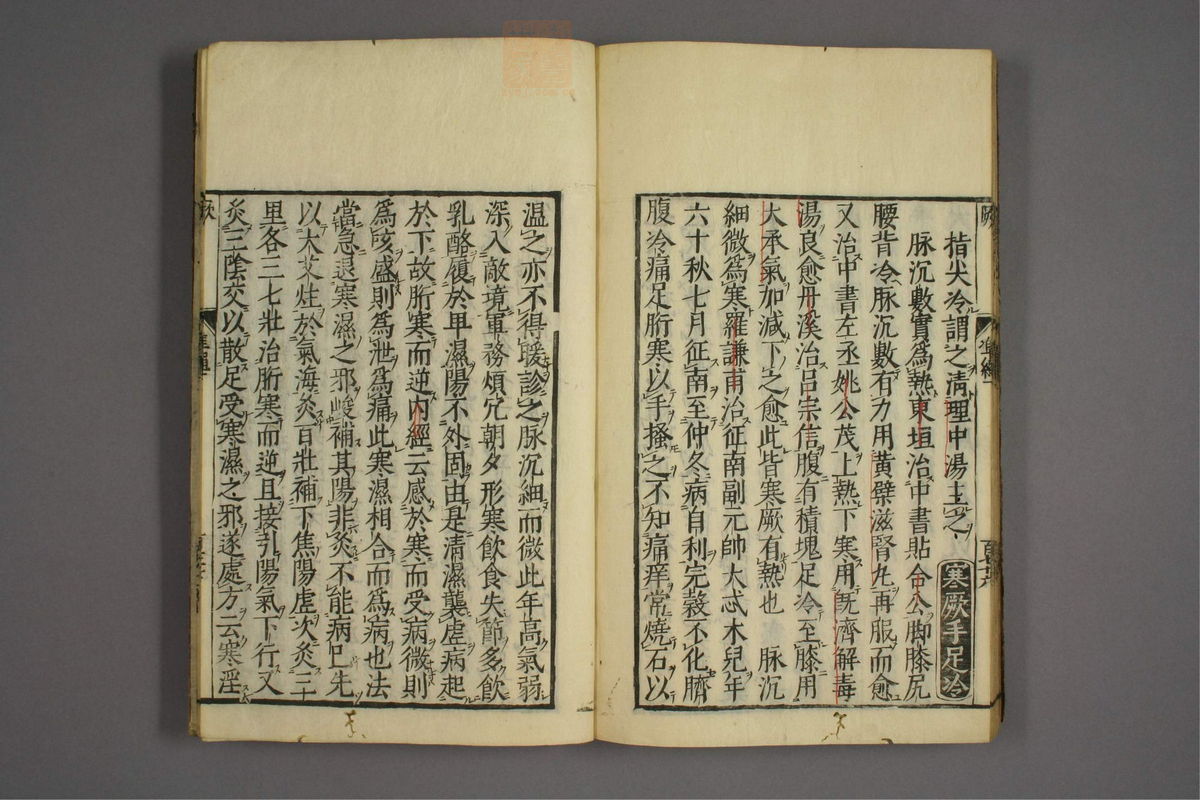 指尖冷謂之清理中湯主之 寒厥手足冷
脉沉數實爲熱東垣治中書貼合公脚膝尻
腰背冷脉沉數有力用黄檗滋腎丸再服而愈
又治中書左丞姚公茂上熱下寒用既濟解毒
湯良愈丹溪治呂宗信腹有積塊足冷至膝用
大承氣加減下之愈此皆寒厥有熱也 脉沉
細微爲寒羅謙甫治征南副元帥大忒木兒年
六十秋七月征南至仲冬病自利完穀不化臍
腹冷痛足胻寒以手搔之不知痛痒常燒石以
温之亦不得暖診之脉沉細而微此年高氣弱
深入敵境軍務煩冗朝夕形寒飲食失節多飲
乳酪履於卑濕陽不外固由是清濕襲虚病起
於下故胻寒而逆内經云感於寒而受病微則
爲咳盛則爲泄爲痛此寒濕相合而爲病也法
當急退寒濕之邪峻補其陽非灸不能病已先
以大艾炷於氣海灸百壯補下焦陽虚次灸三
里各三七壯治胻寒而逆且接引陽氣下行又
灸三陰交以散足受寒濕之邪遂處方云寒淫
厥